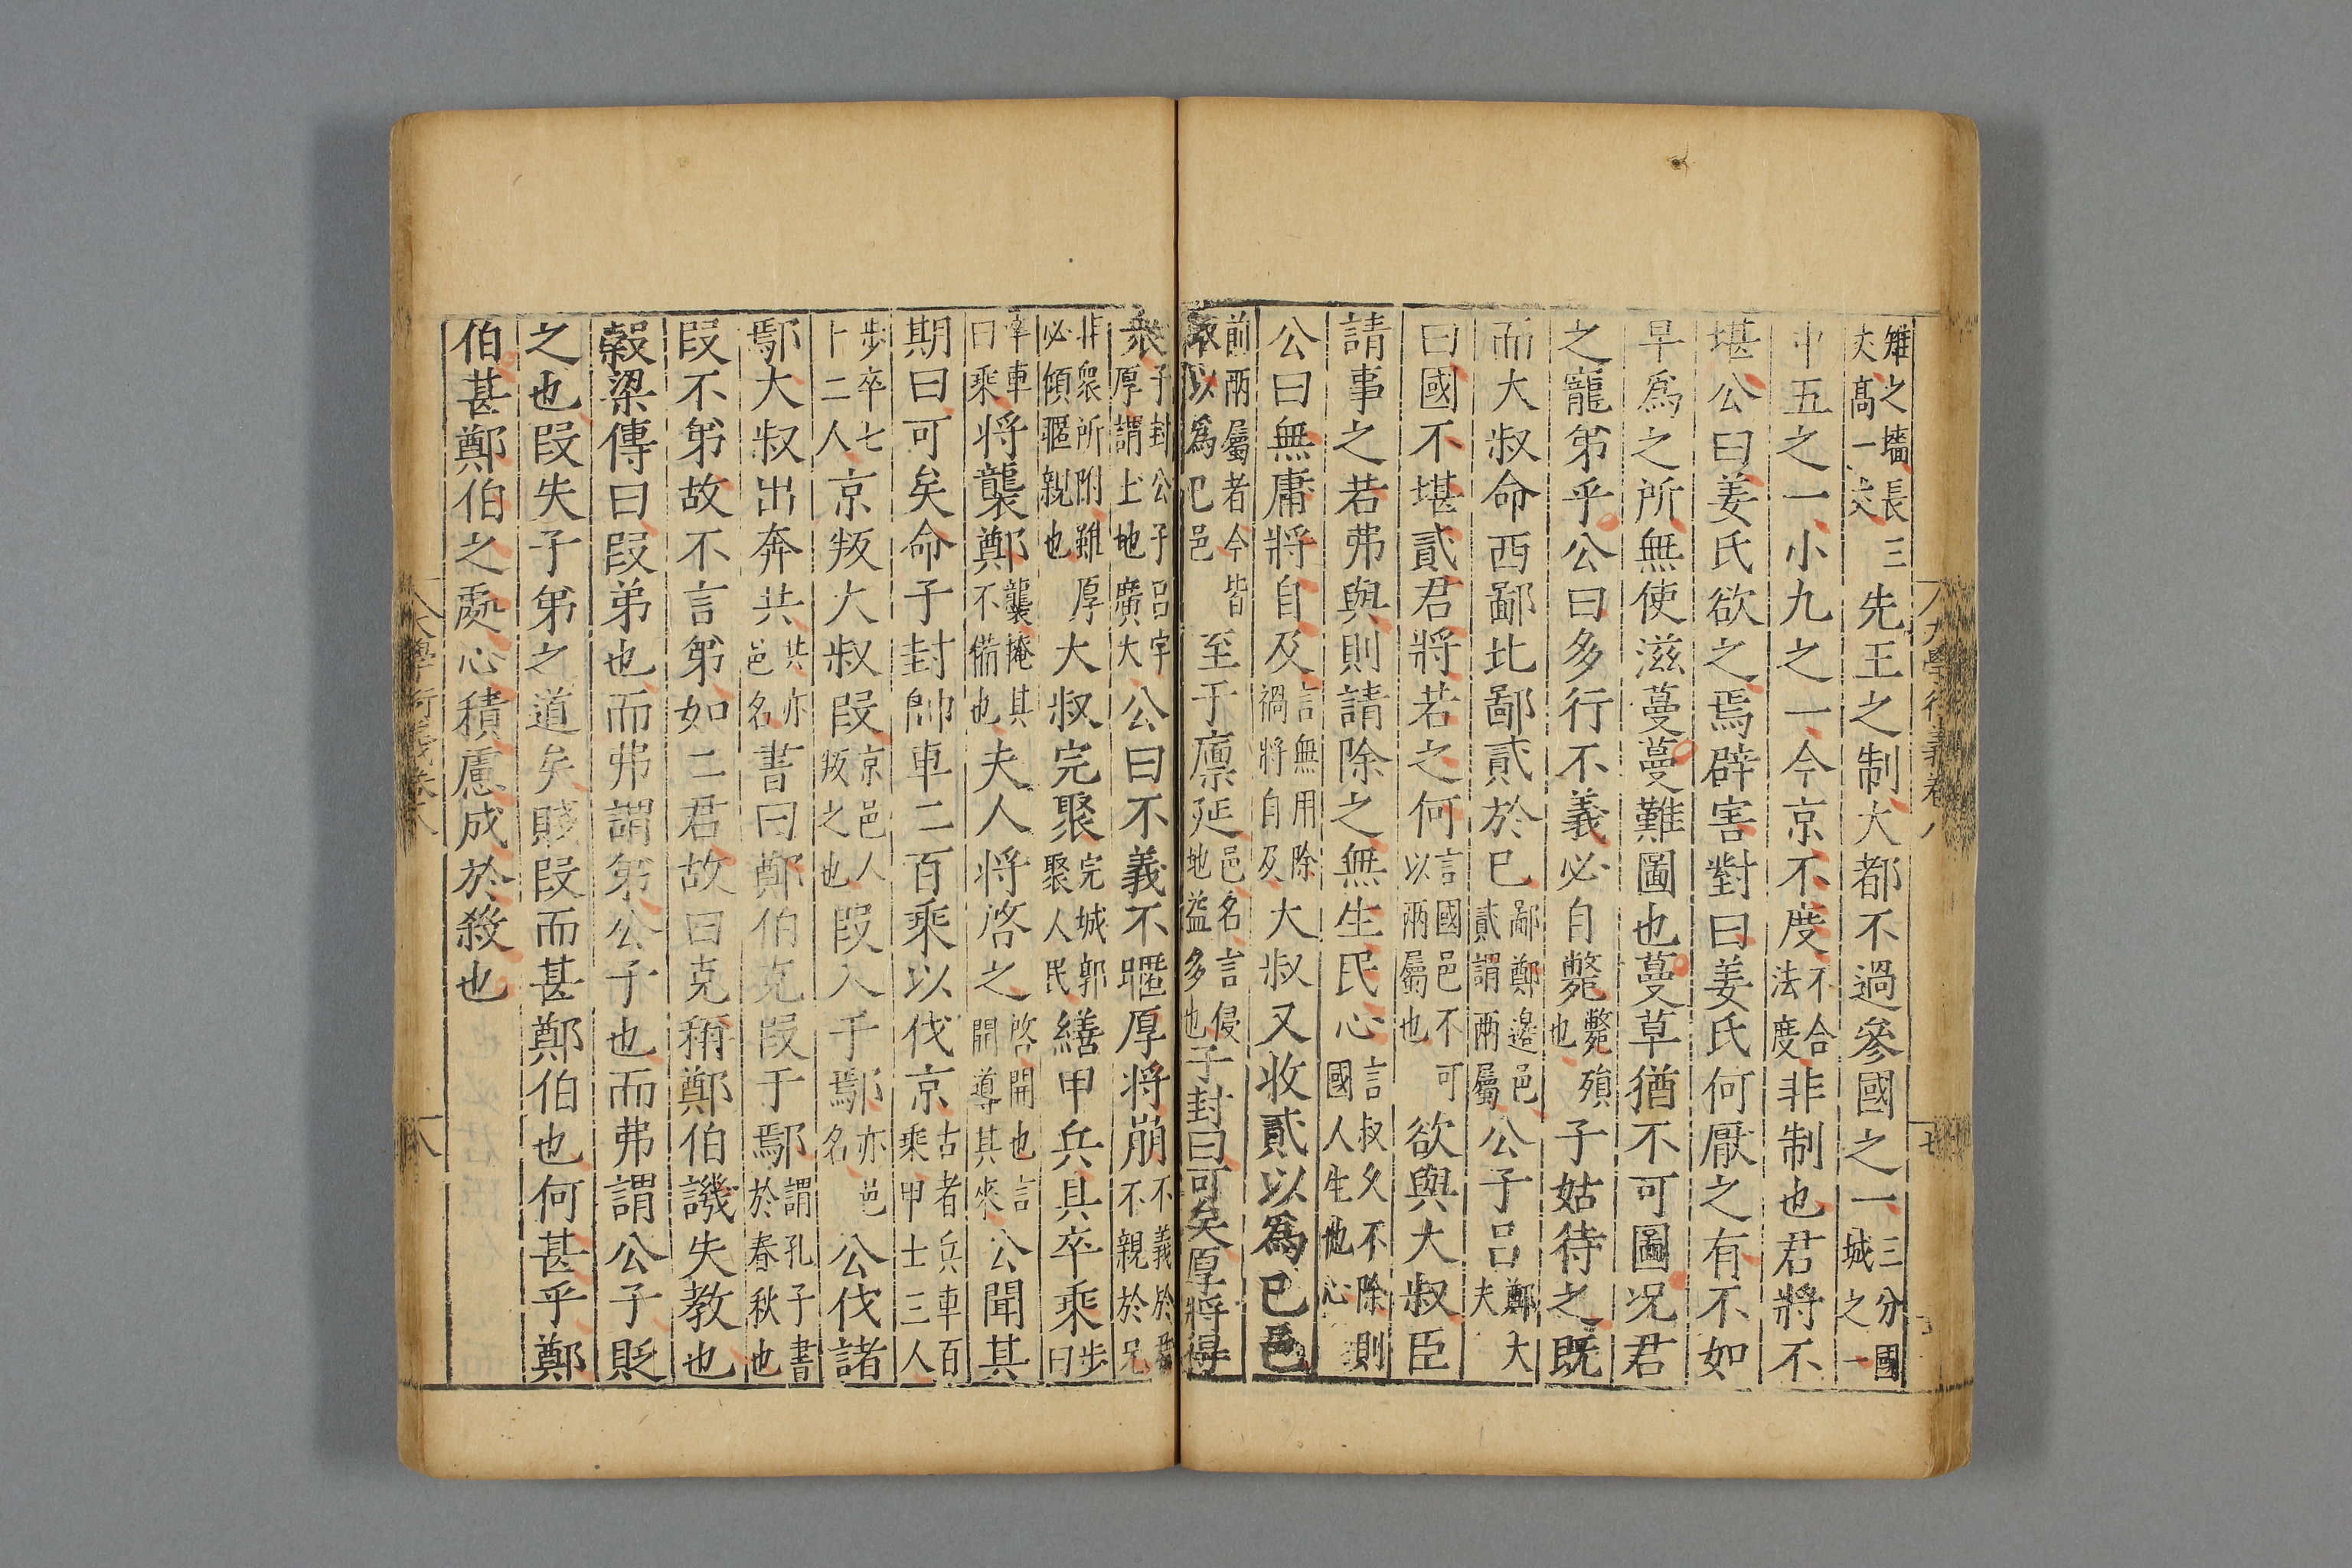 雉之墻長三丈髙一丈先王之制大都不過參國之一三分國城之一
中五之一小九之一今京不度不合法度非制也君將不
堪公曰姜氏欲之焉辟害對曰姜氏何厭之有不如
早爲之所無使滋蔓蔓難圖也蔓草猶不可圖况君
之寵弟乎公曰多行不義必自斃斃殞也子姑待之既
而大叔命西鄙北鄙貳於已鄙鄭邊邑貳謂兩屬公子吕鄭大夫
曰國不堪貳君將若之何言國邑不可以兩屬也欲與大叔臣
請事之若弗與則請除之無生民心言叔久不除則國人生他心
公曰無庸將自及言無用除禍將自及大叔又收貳以爲已邑
前兩屬者今皆取以爲已邑至于廪延邑名言侵地益多也子封曰可矣厚將得
衆子封公子吕字厚謂土地廣大公曰不義不暱厚將崩不義於君不親於兄
非衆所附雖厚必傾暱親也大叔完聚完城郭聚人民繕甲兵具卒乘步曰
卒車曰乘將襲鄭襲掩其不備也夫人將啓之啓開也言開導其來公聞其
期曰可矣命子封帥車二百乘以伐京古者兵車百乘甲士三人
步卒七十二人京叛大叔叚京邑人叛之也叚入于鄢亦邑名公伐諸
鄢大叔出奔共共亦邑名書曰鄭伯克叚于鄢謂孔子書於春秋也
叚不弟故不言弟如二君故曰克稱鄭伯譏失教也
榖梁傳曰叚弟也而弗謂弟公子也而弗謂公子貶
之也叚失子弟之道矣賤叚而甚鄭伯也何甚乎鄭
伯甚鄭伯之處心積慮成於殺也
大學衍義卷八
七
大學衍義卷八
八